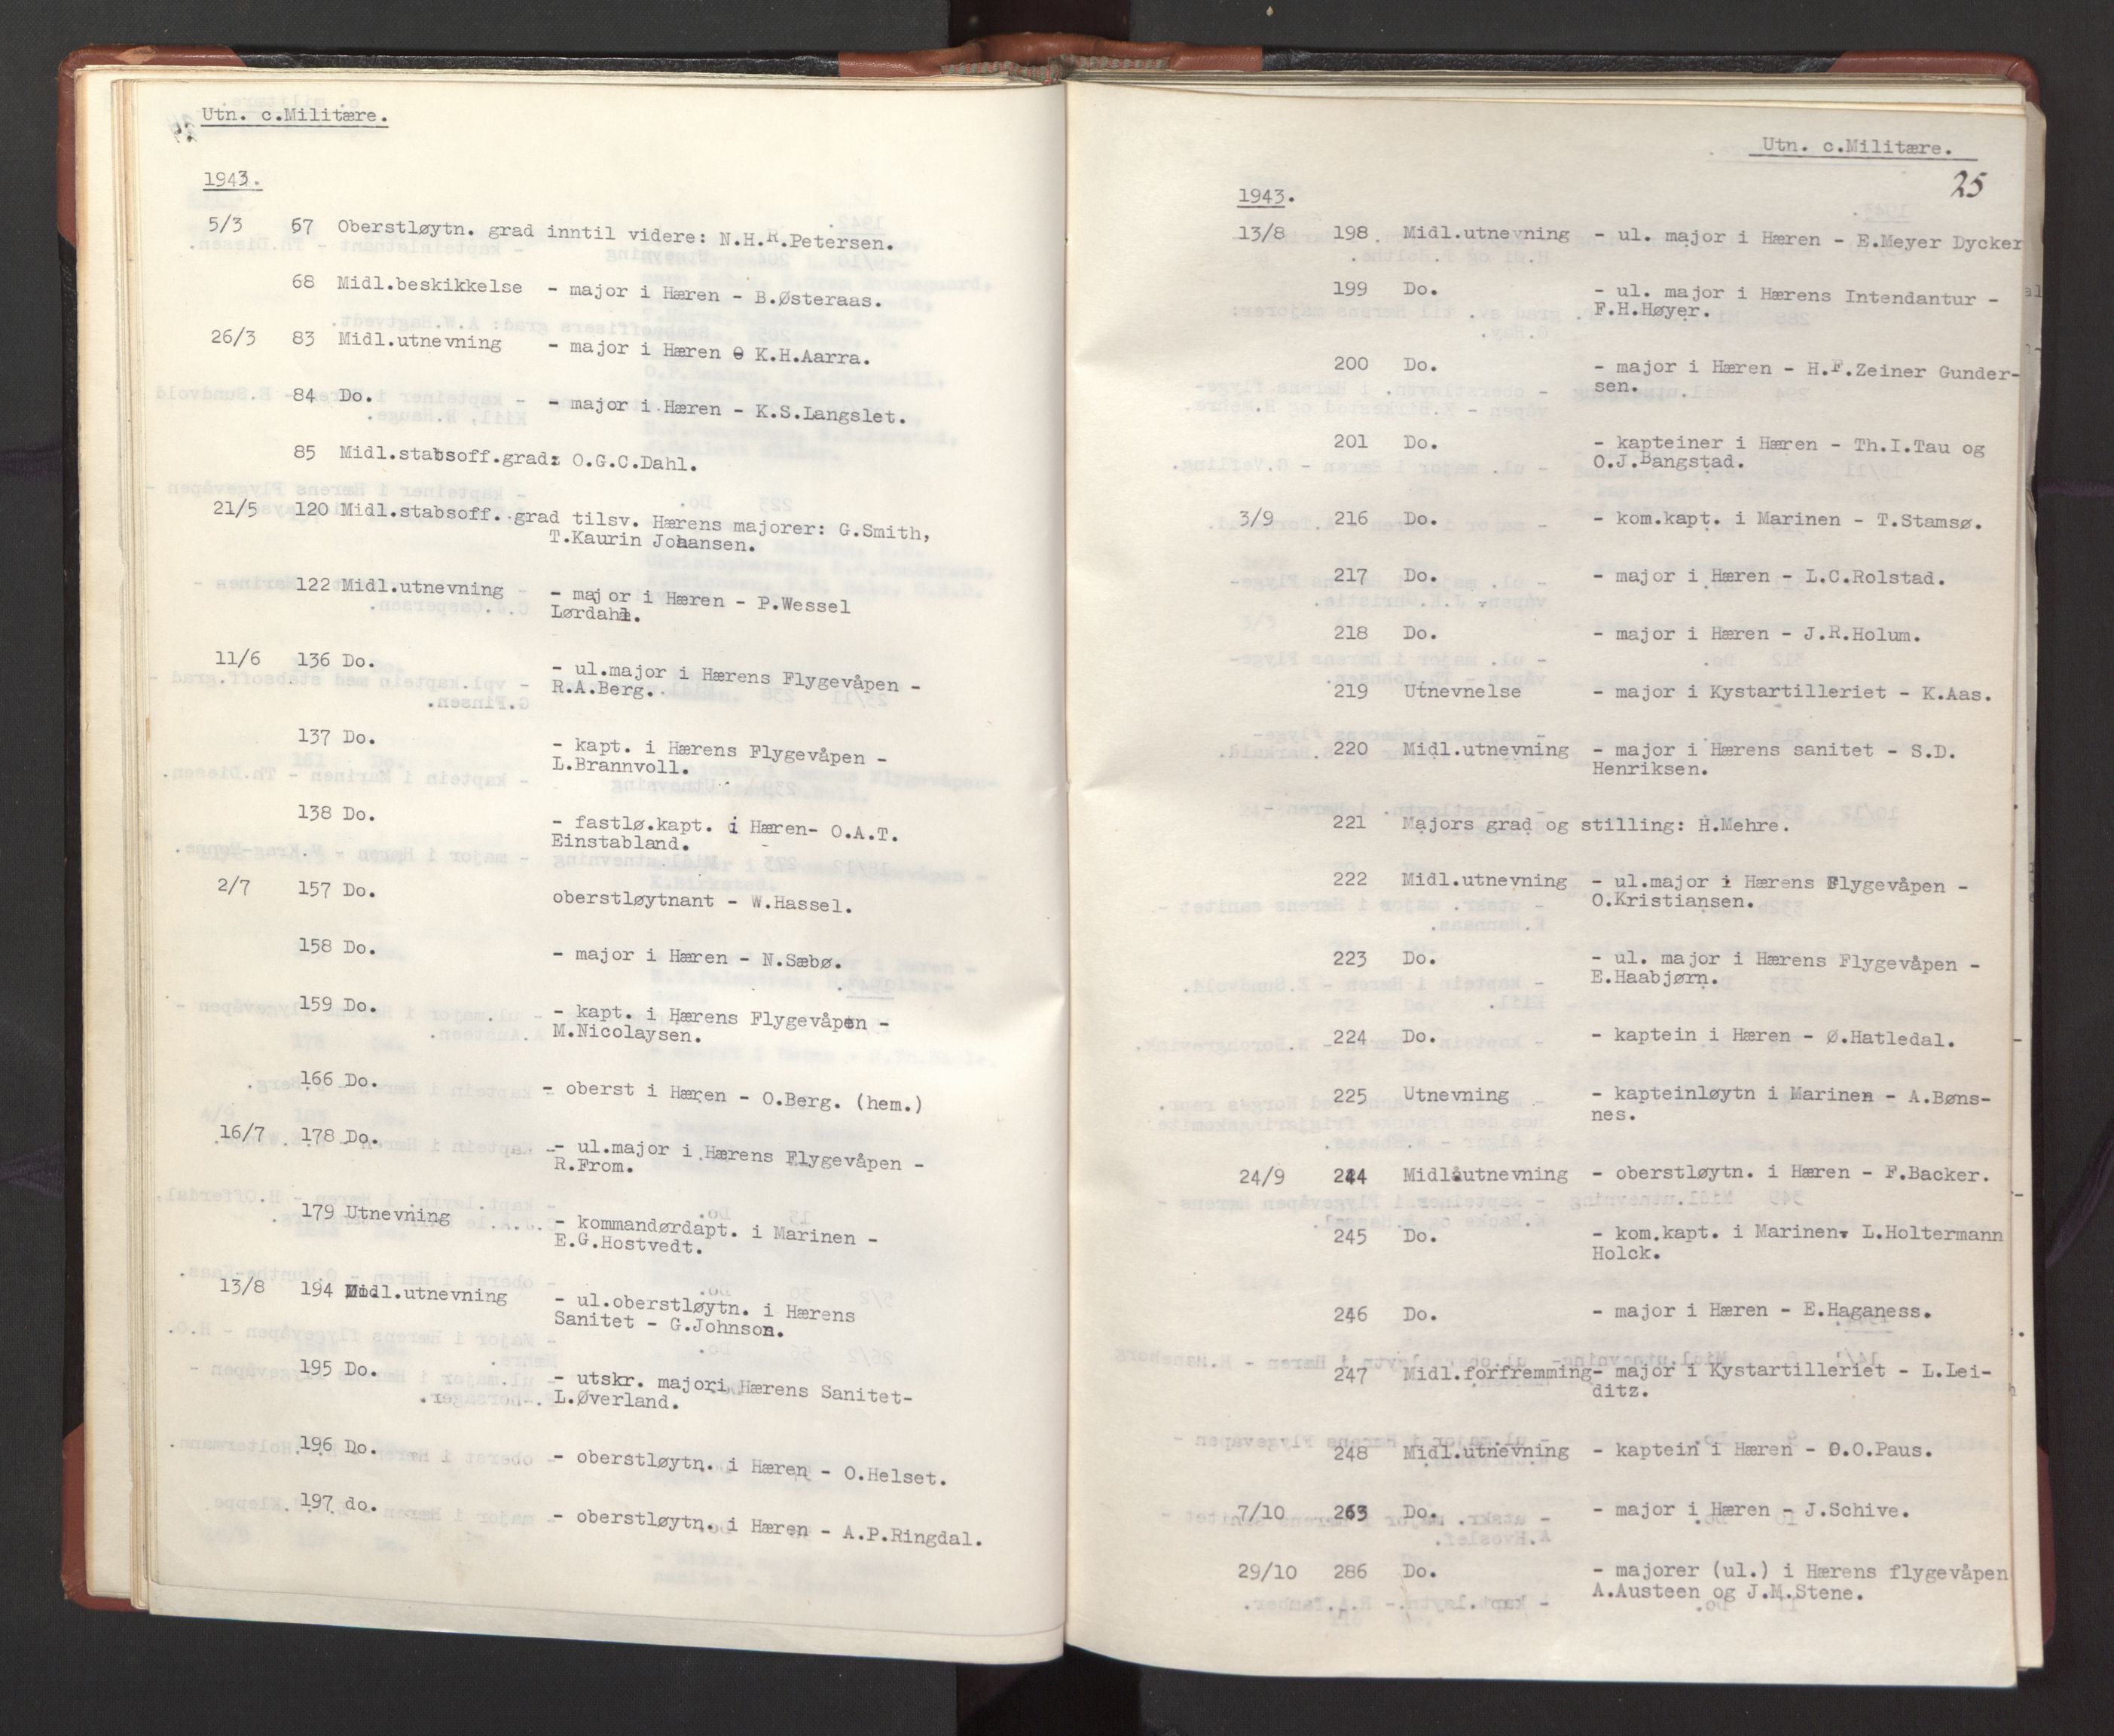 Utn. c.Militære.
1943.
5/3 67 Oberstløytn. grad inntil videre: N.H.R.Petersen.
68 Midl.beskikkelse - major i Hæren - B.Østeraas.
26/3 83 Midl.utnevning - major i Hæren K.H.Aarra.
84 Do. - major i Hæren - K.S.Langslet.
85 Midl.stabsoff.grad: O.G.C.Dahl.
21/5 120 Midl.stabsoff. grad tilsv. Hærens majorer: G.Smith,
T.Kaurin Johansen.
122 Midl.utnevning - major i Hæren - P.Wessel
Lørdahl.
11/6 136 Do. - ul.major i Hærens Flygevåpen -
R.A.Berg.
137 Do. - kapt. i Hærens Flygevåpen -
L.Brannvoll.
138 Do. - fastlø.kapt. i Hæren- O.A.T.
Einstabland.
2/7 157 Do. oberstløytnant - W.Hassel.
158 Do. - major i Hæren - N.Sæbø.
159 Do. - kapt. i Hærens Flygevåpen -
M.Nicolaysen.
166 Do. - oberst i Hæren - O.Berg. (hem.)
16/7 178 Do. - ul.major i Hærens Flygevåpen -
R.From.
179 Utnevning - kommandørdapt. i Marinen -
E.G.Hostvedt.
13/8 194 Midl.utnevning - ul.oberstløytn. i Hærens
Sanitet - G.Johnson.
195 Do. - utskr. majori Hærens Sanitet-
L.Øverland.
196 Do. - oberstløytn. i Hæren - O.Helset.
197 do. - oberstløytn. i Hæren - A.P.Ringdal.
Utn. c.Militære.
25
1943.
13/8 198 Midl.utnevning - ul. major i Hæren - E.Meyer Dycker
199 Do. - ul. major i Hærens Intendantur -
F.H.Høyer.
200 Do. - major i Hæren - H.F.Zeiner Gunder-
sen.
201 Do. - kapteiner i Hæren - Th.I.Tau og
O.J.Bangstad.
3/9 216 Do. - kom.kapt. i Marinen - T.Stamsø.
217 Do. - major i Hæren - L.C.Rolstad.
218 Do. - major i Hæren - J.R.Holum.
219 Utnevnelse - major i Kystartilleriet - K.Aas.
220 Midl.utnevning - major i Hærens sanitet - S.D.
Henriksen.
221 Majors grad og stilling: H.Mehre.
222 Midl.utnevning - ul.major i Hærens Flygevåpen -
O.Kristiansen.
223 Do. - ul. major i Hærens Flygevåpen -
E.Haabjørn.
224 Do. - kaptein i Hæren - Ø.Hatledal.
225 Utnevning - kapteinløytn i Marinen - A.Bøns-
nes.
24/9 244 Midlåutnevning - oberstløytn. i Hæren - F.Backer.
245 Do. - kom.kapt. i Marinen. L.Holtermann
Holck.
246 Do. - major i Hæren - E.Haganess.
247 Midl.forfremming- major i Kystartilleriet - L.Lei-
ditz.
248 Midl.utnevning - kaptein i Hæren - O.O.Paus.
7/10 263 Do. - major i Hæren - J.Schive.
29/10 286 Do. - majorer (ul.) i Hærens flygevåpen
A.Austeen og J.M.Stene.